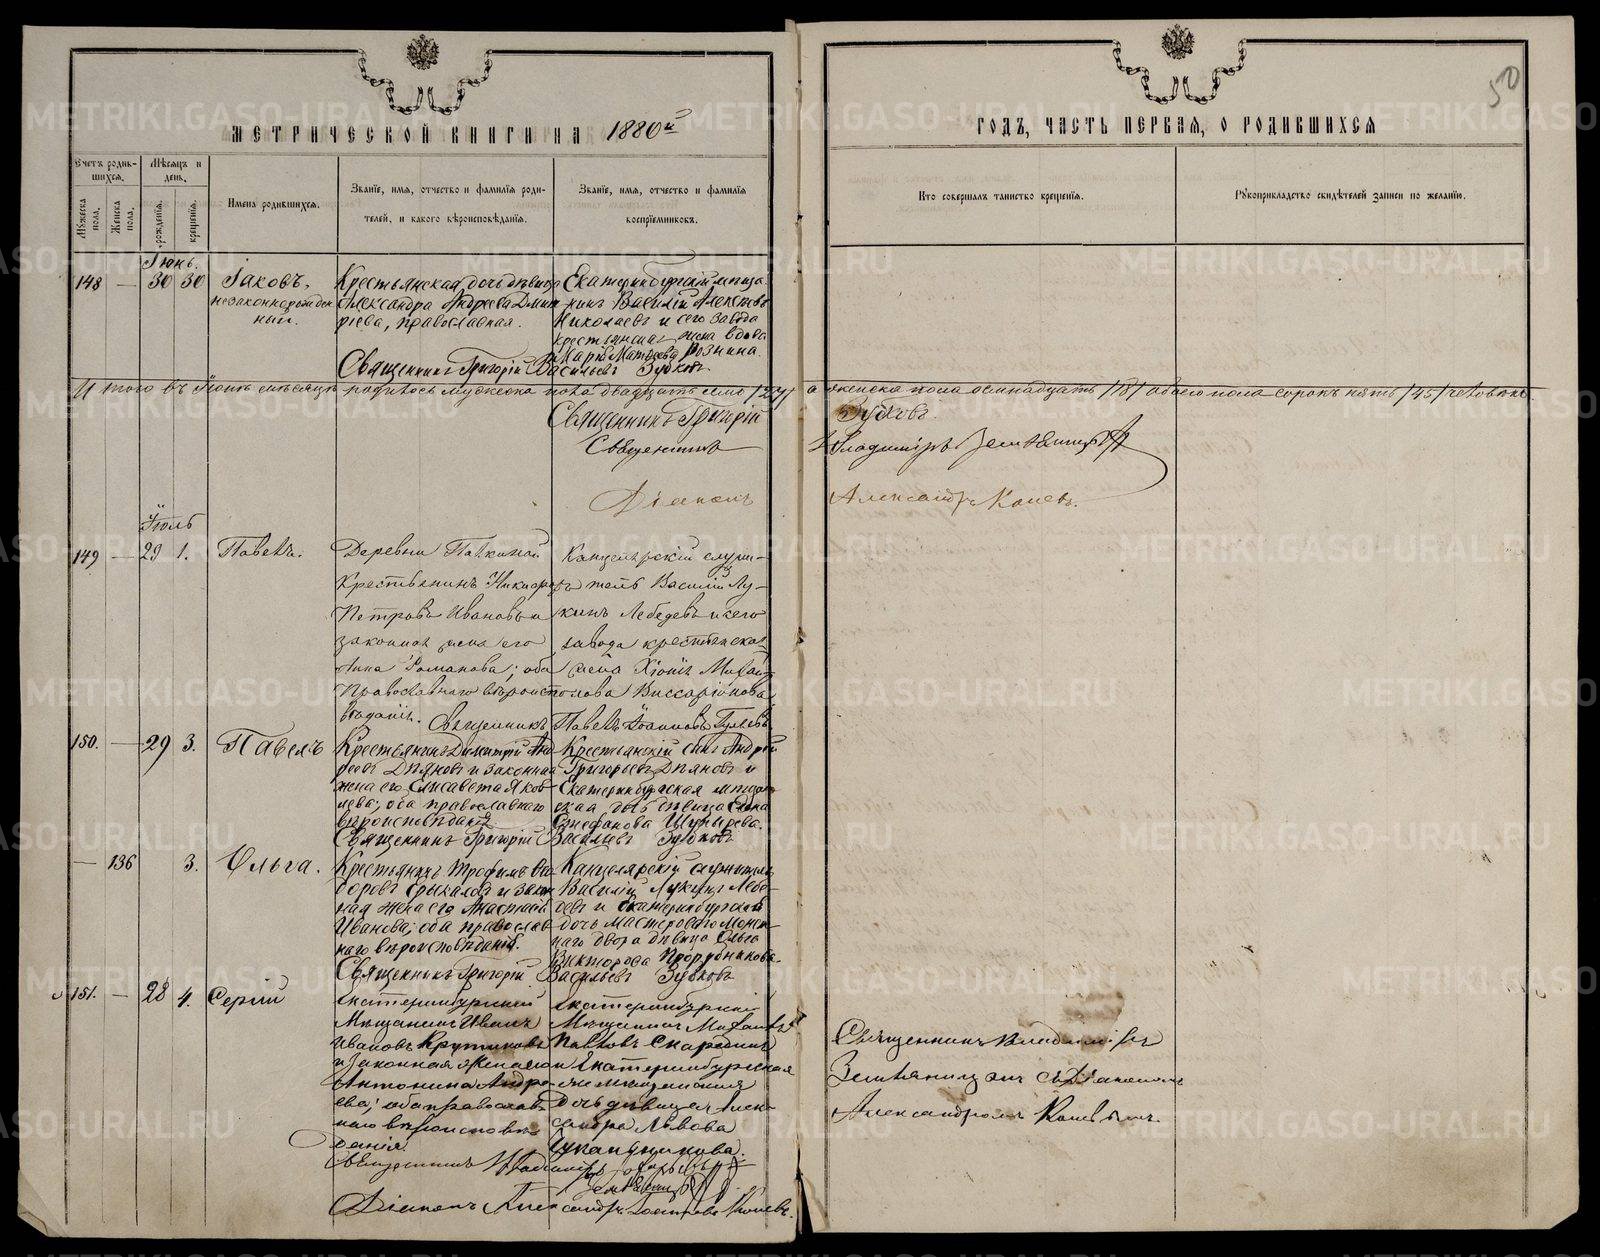 МЕТРИЧЕСКОЙ КНИГИ НА 1880й
ГОДЪ, ЧАСТЬ ПЕРВАЯ, О РОДИВШИХСЯ
50
Счетъ родив-
шихся.
Мѣсяцъ и
день.
Мужеска
пола.
Женска
пола.
рожденія.
крещенія.
Имена родившихся.
Званіе, имя, отчество и фамилія роди-
телей, и какого вѣроисповѣданія.
Званіе, имя, отчество и фамилія
воспріемниковъ.
Кто совершалъ таинство крещенія.
Рукоприкладство свидѣтелей записи по желанію.
Іюнь.
148 — 30 30
Іаковъ,
незаконнорожден
ный.
Крестьянская дочь дѣвица
Александра Андреева Дмит
ріева, православная.
Екатеринбургскій мѣща
нинъ Василій
Николаевъ и сего завода
крестьянская жена вдова
Марія Матвѣева
Священникъ Григорій Васильевъ Зубковъ
Итого въ Іюнѣ мѣсяцѣ родилось мужеска пола двадцать семь /27/ а женска пола осмнадцать /18/ обоего пола сорокъ пять /45/ человѣкъ.
Священникъ Григорій Зубковъ.
Священникъ Владиміръ Земляницынъ
Діаконъ Александръ Коневъ.
Іюль
149 — 29 1.
Павелъ.
Деревни
Крестьянинъ Никифоръ
Петровъ Ивановъ и
законная жена его
Анна Романова; оба
Православнаго вѣроиспо
вѣданія.
Канцелярскій служи-
тель Василій Лу-
кинъ Лебедевъ и сего
завода крестьянская
жена Хіонія
Виссаріонова
Священникъ Павелъ Іоанновъ
150. — 29 3.
Павелъ
Крестьянинъ Димитрій Ан
реевъ Дпяновъ и законная
жена его Елисавета Яков
лева; оба православнаго
вѣроисповѣданія
Крестьянскій сынъ Андрей
Григорьевъ Дпяновъ и
Екатеринбургская мѣщан
ская дочь дѣвица Елена
Стефанова
Священникъ Григорій Васильевъ Зубковъ
— 136 3.
Ольга.
Крестьянинъ Трофимъ
и закон
ная жена его Анастасія
Иванова; оба православ
наго вѣроисповѣданія.
Канцелярскій служитель
Василій Лукинъ Лебе-
девъ и Екатеринбургской
дочь мастероваго Монет-
наго двора дѣвица Ольга
Викторова
Священникъ Григорій Васильевъ Зубковъ
151. — 28 4.
Сергій
Екатеринбургскій
Мѣщанинъ Иванъ
Ивановъ Крутиковъ
и законная жена его
Антонина Андре
ева; оба православ
наго вѣроисповѣ
данія
Екатеринбургскій
Мѣщанинъ Михаилъ
Павловъ Скарединъ
и Екатеринбургская
мѣщанская
Дочь дѣвица Алек-
сандра Львова
Священникъ Владиміръ
Земляницынъ
Діаконъ Александръ Коневъ.
Священникъ Владиміръ
Земляницынъ съ Діакономъ
Александромъ Коневымъ.
METRIKI.GASO-URAL.RU